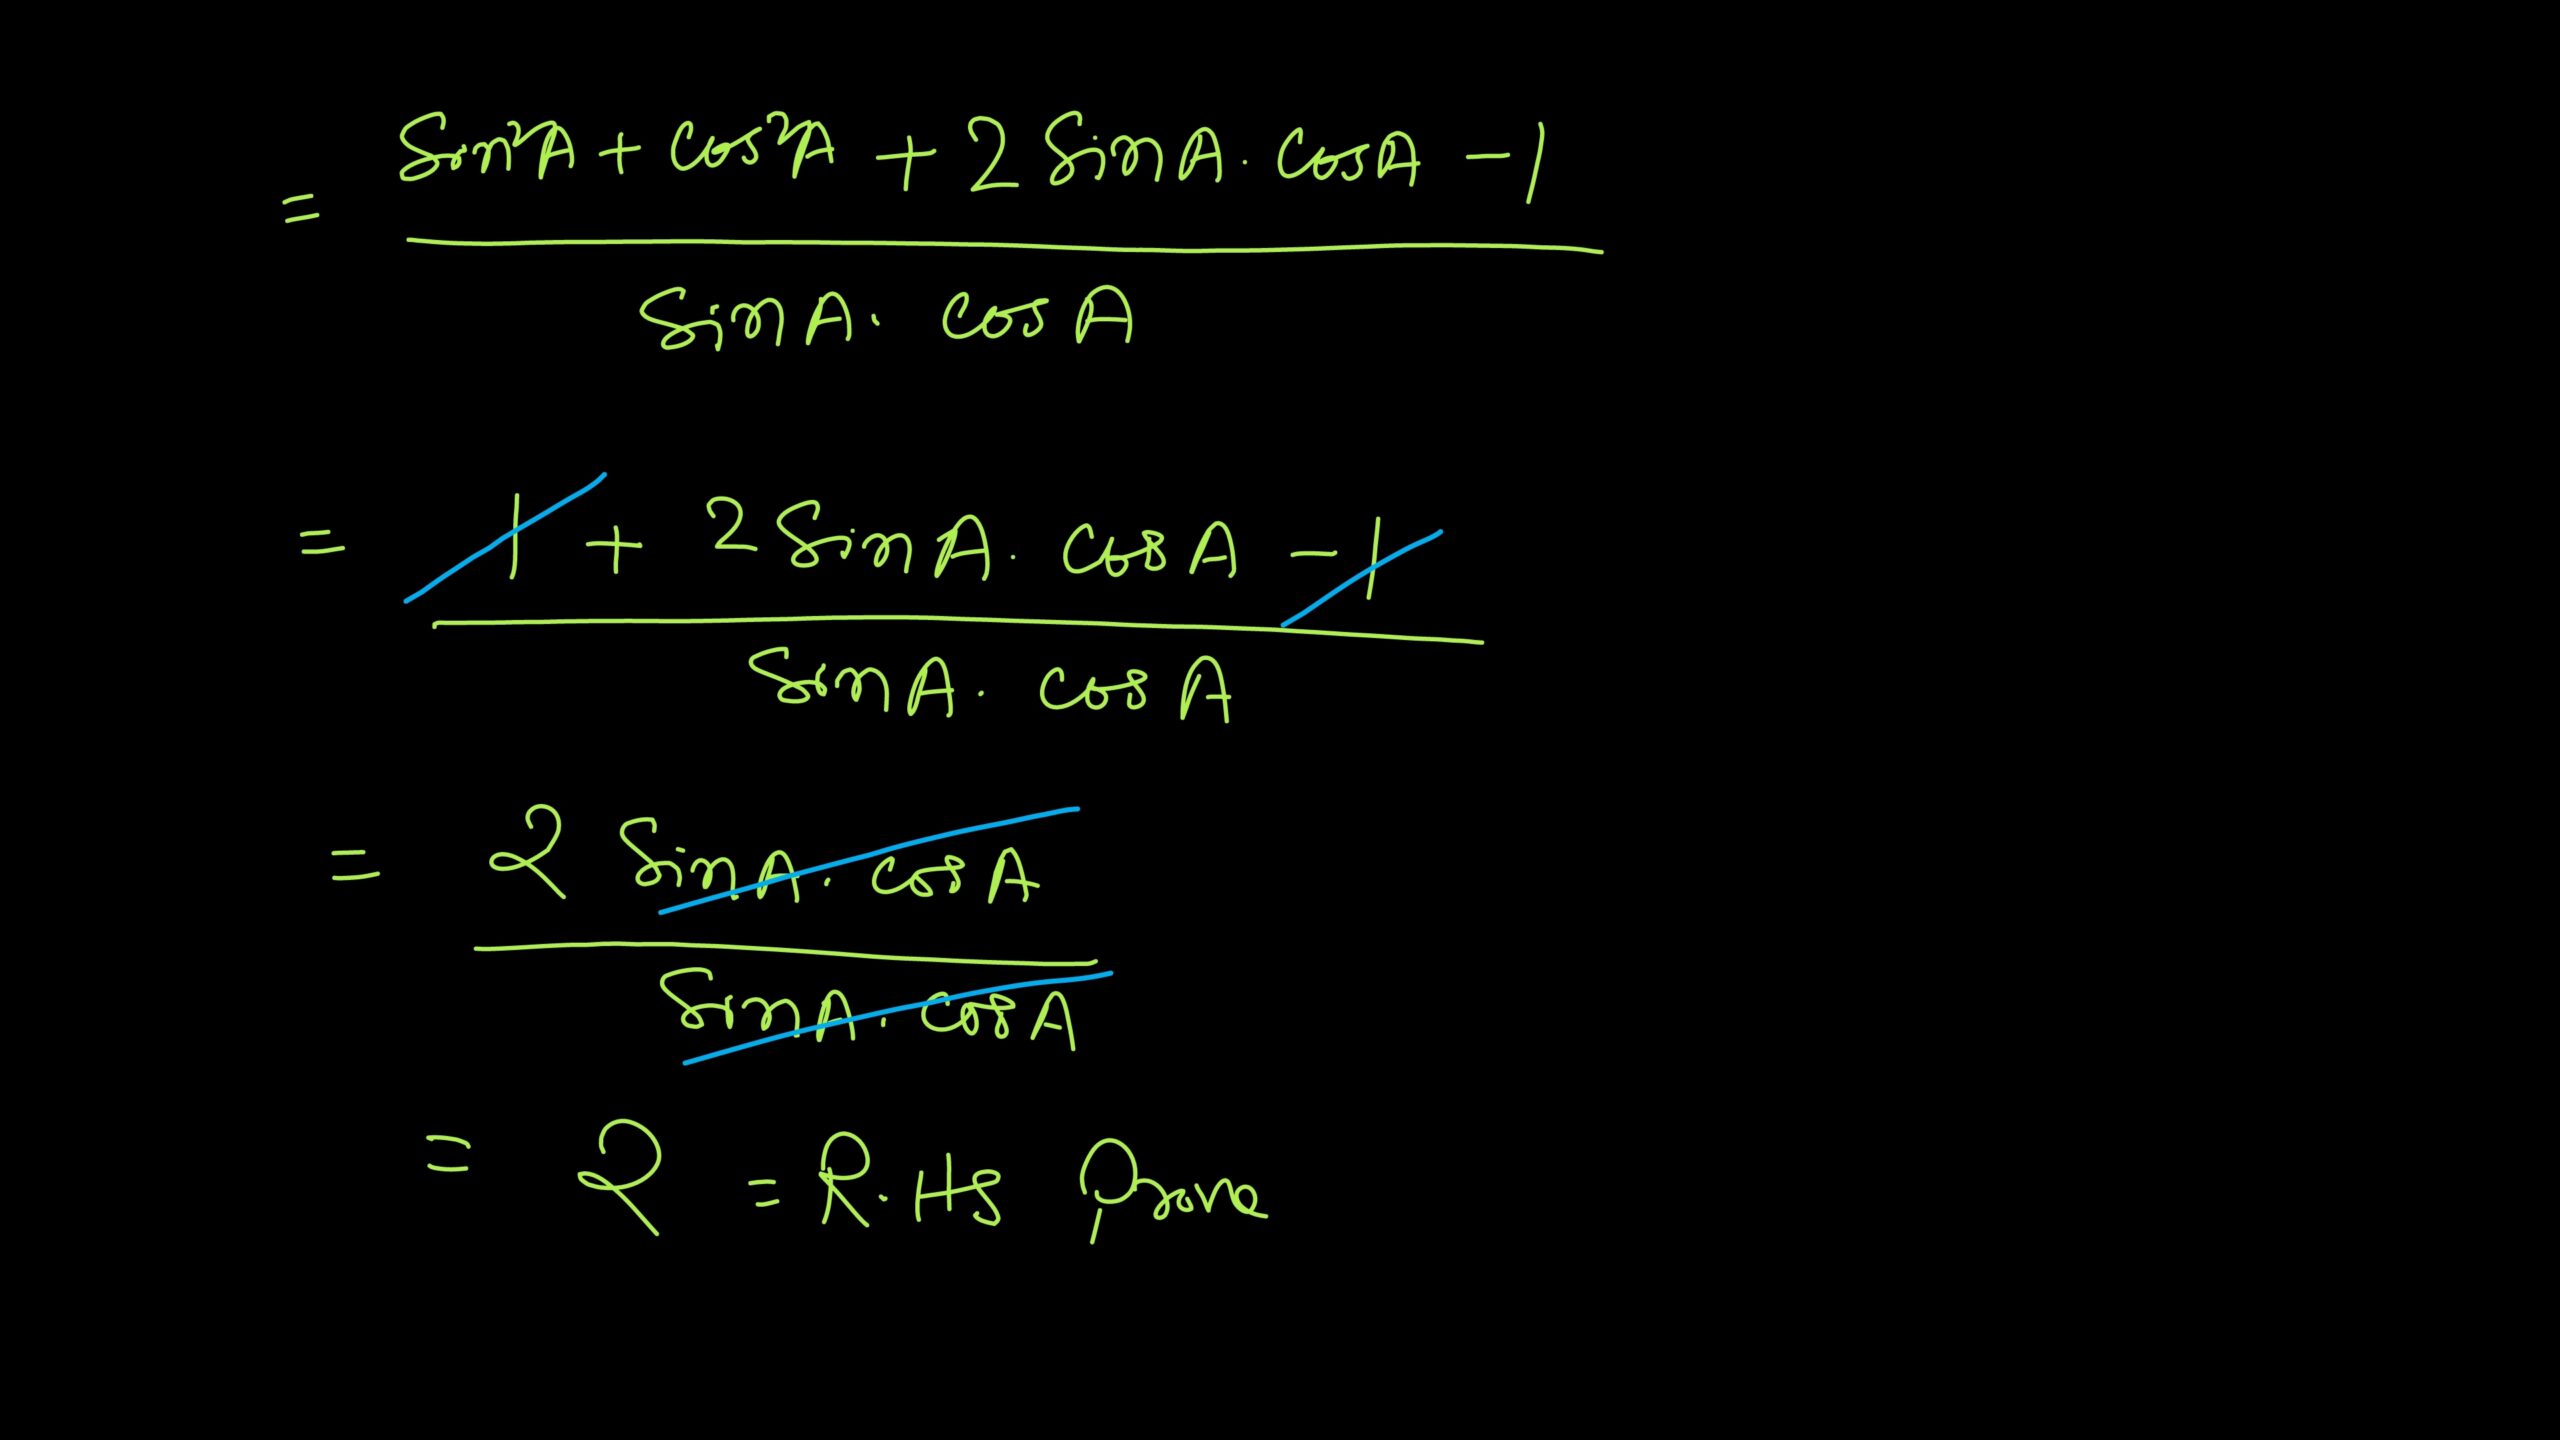 = Sin²A + cos²A + 2 SinA . cosA - 1
SinA . cosA
= 1 + 2 SinA . cosA - 1
SinA . cosA
= 2 SinA . cosA
SinA . cosA
= 2 = R.Hs Prove